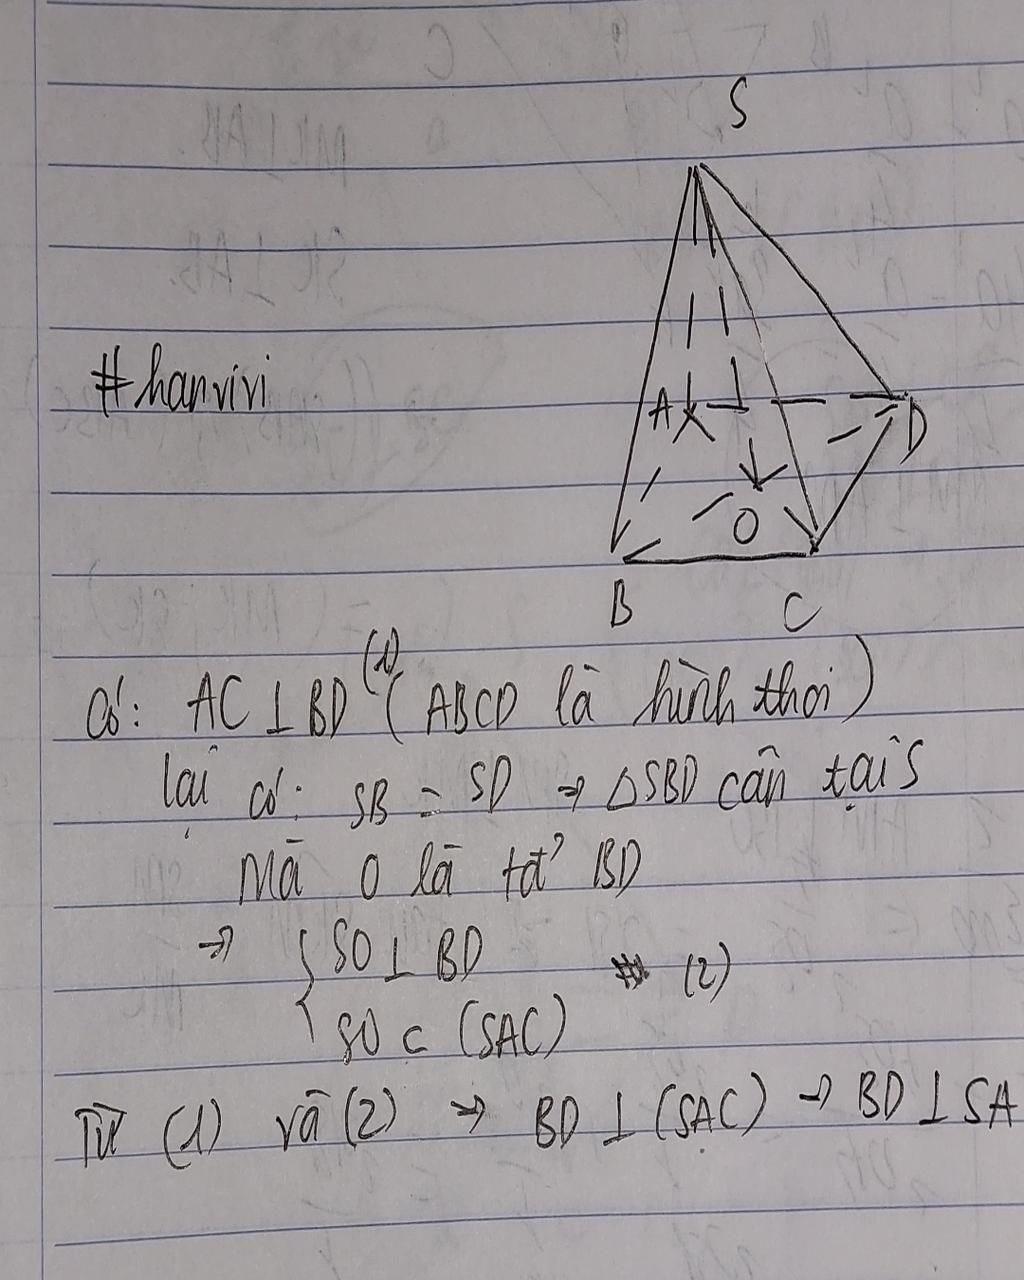 S
#hanvivi
A
D
O
B
C
Có: AC ⊥ BD (1) (ABCD là hình thoi)
lại có: SB = SD → ΔSBD cân tại S
Mà O là tđ' BD
→ { SO ⊥ BD
SO ⊂ (SAC) (2)
Từ (1) và (2) → BD ⊥ (SAC) → BD ⊥ SA